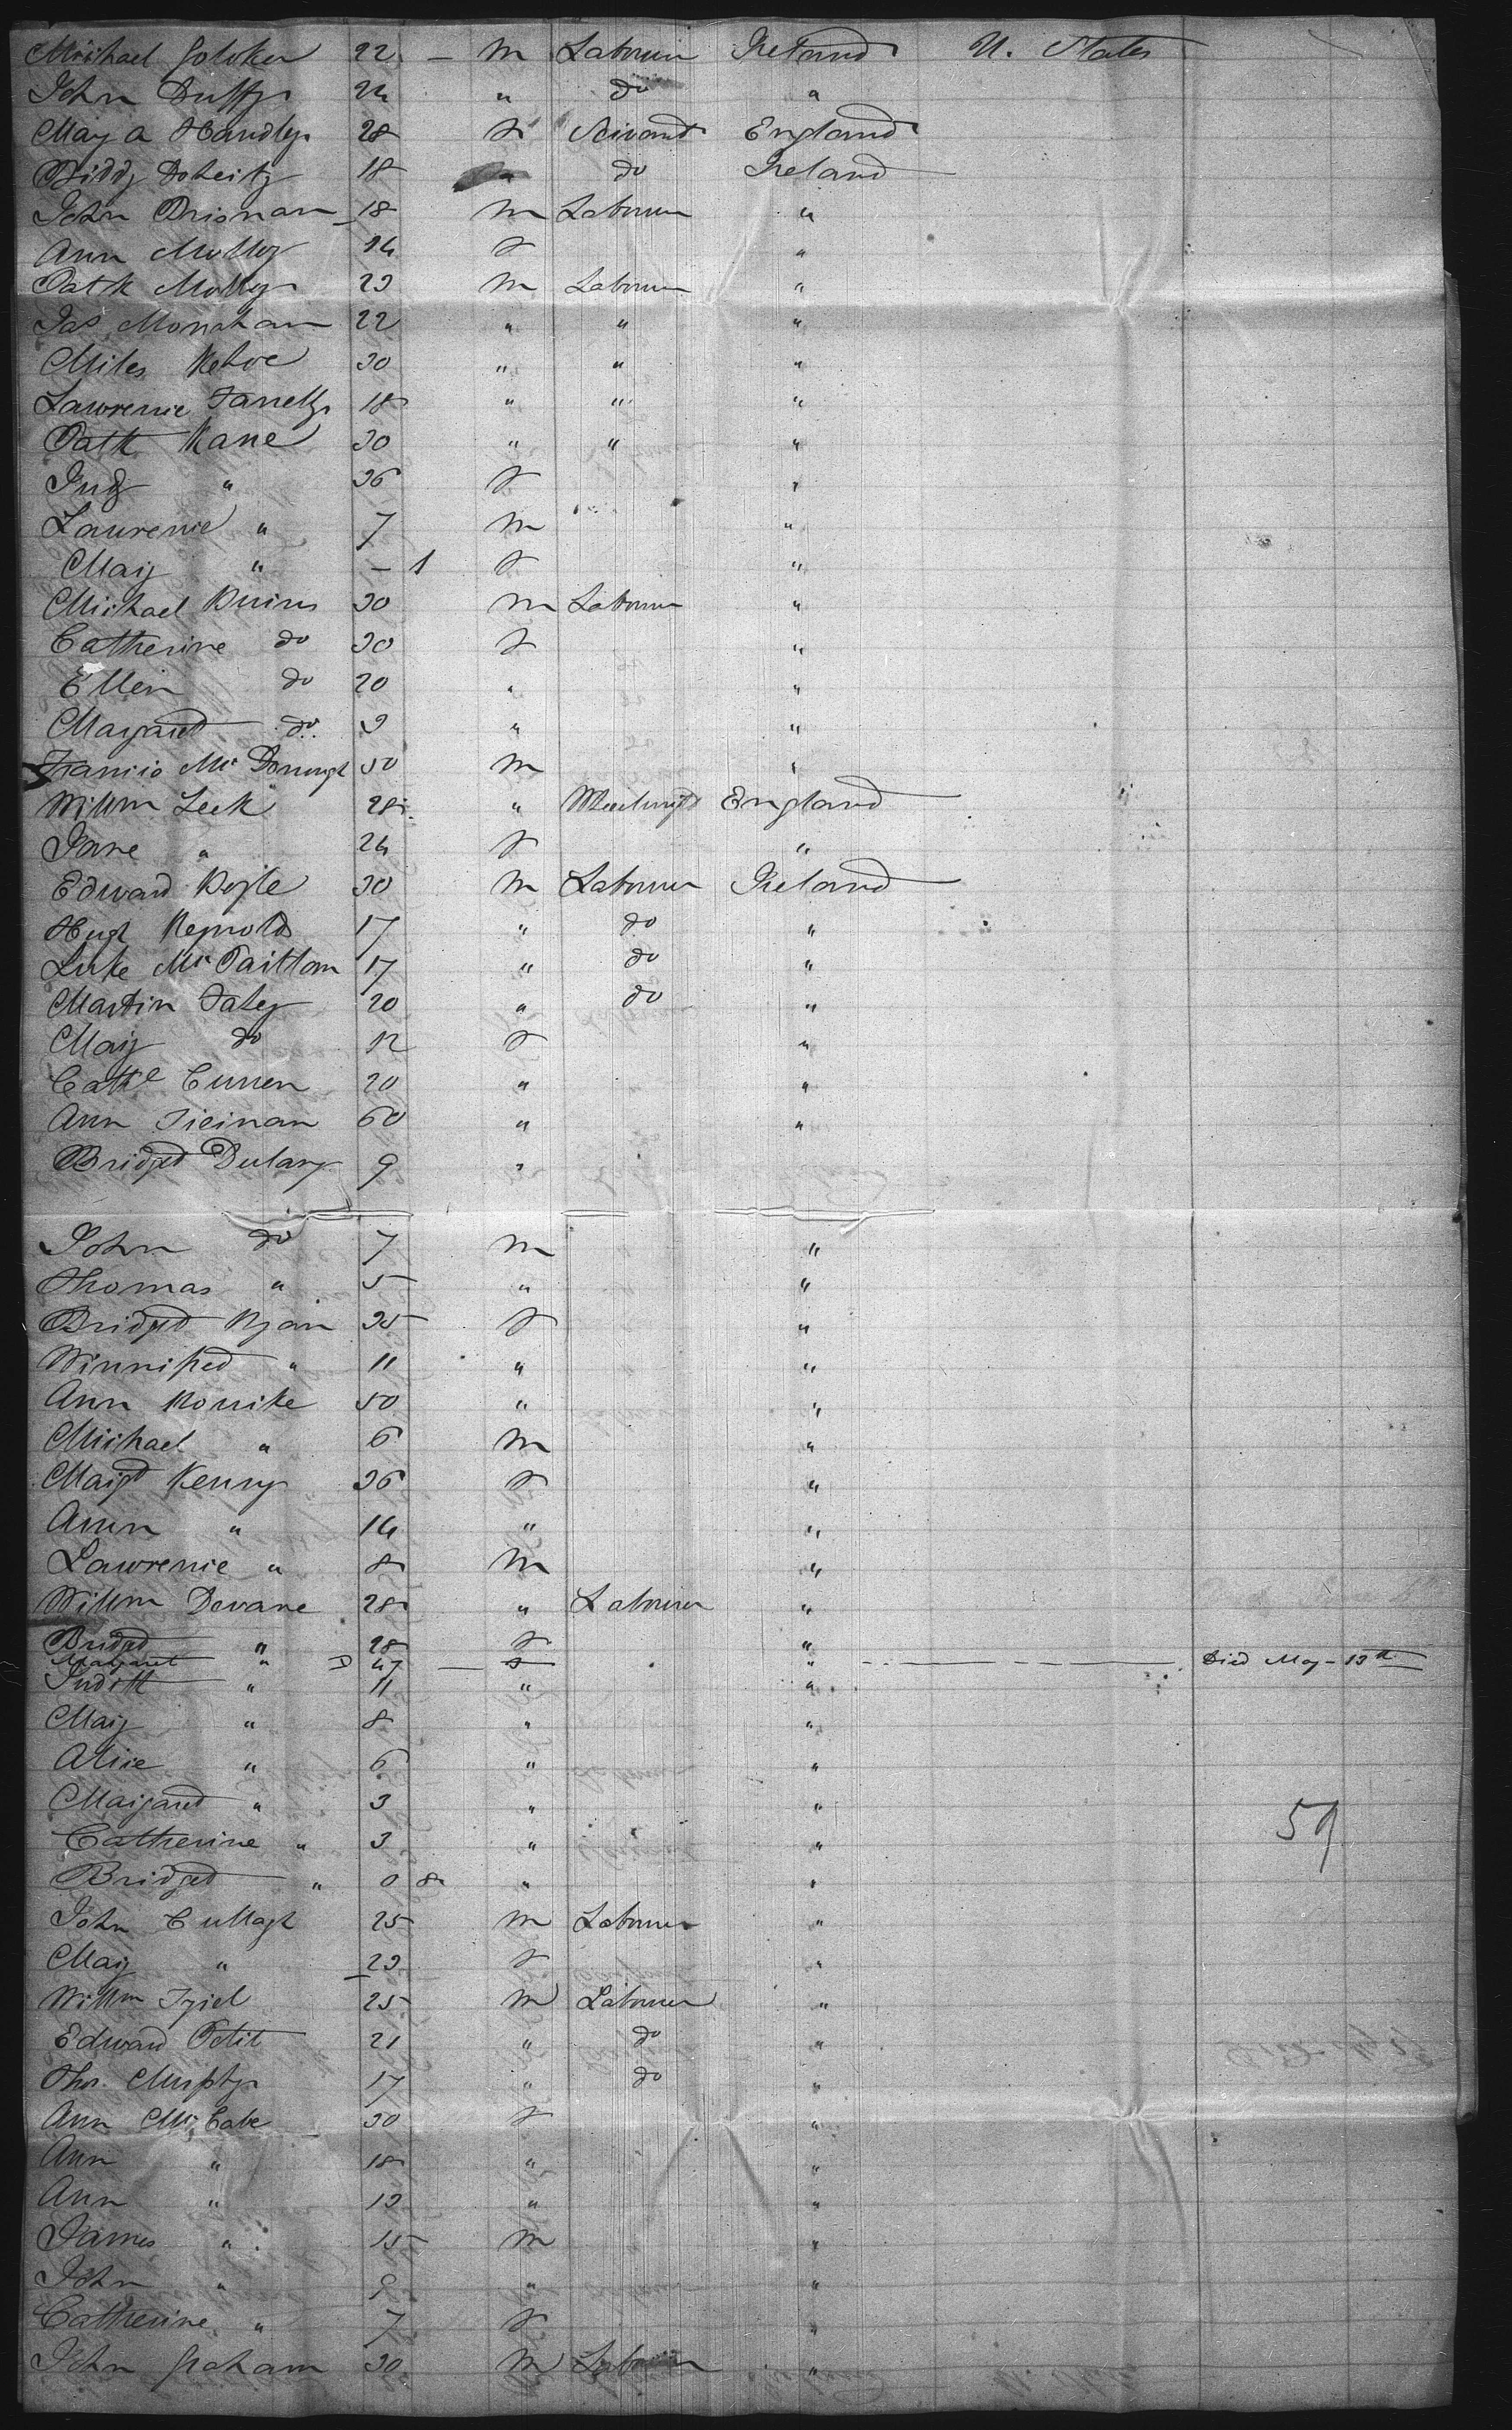 Michael Goloker 22 - m Labourer Ireland U. States
John Duffy 24 " do "
Mary A Handley 28 f Servant England
Biddy Doherty 18 " do Ireland
John Brisnan 18 m Labourer "
Ann Molloy 14 f "
Patk Molloy 23 m Labourer "
Jas Monahan 22 " " "
Miles Kehoe 30 " " "
Lawrence Farrelly 18 " " "
Patk Kane 30 " " "
Judy " 36 f "
Laurence " 7 m "
Mary " - 1 f "
Michael 30 m Labourer "
Catherine do 30 f "
Ellen do 20 " "
Margaret do 9 " "
Francis McDonough 50 m "
Willm Leek 28 " England
Jane " 24 f "
Edward Boyle 30 m Labourer Ireland
Hugh Reynolds 17 " do "
Luke McPartlan 17 " do "
Martin Fahey 20 " do "
Mary do 12 f "
Cathe Curren 20 " "
Ann Tiernan 60 " "
Bridget Dulany 9 " "
John do 7 m "
Thomas " 5 " "
Bridget Ryan 35 f "
Winnifred " 11 " "
Ann Rourke 50 " "
Michael " 6 m "
Margt Kenny 36 f "
Ann " 14 " "
Lawrence " 8 m "
Willm Devane 28 " Labourer "
Bridget " 28 f "
Margaret " D 47 - f " Died May - 13th
Judith " 11 " "
Mary " 8 " "
Alice " 6 " "
Margaret " 3 " "
59
Catherine " 3 " "
Bridget " 0 8 " "
John Cullagh 25 m Labourer "
Mary " 23 f "
Willm 25 m Labourer "
Edward Petit 21 " do "
Thos. Murphy 17 " do "
Ann McCabe 30 f "
Ann " 18 " "
Ann " 13 " "
James " 15 m "
John " 9 " "
Catherine " 7 f "
John Graham 30 m Labourer "